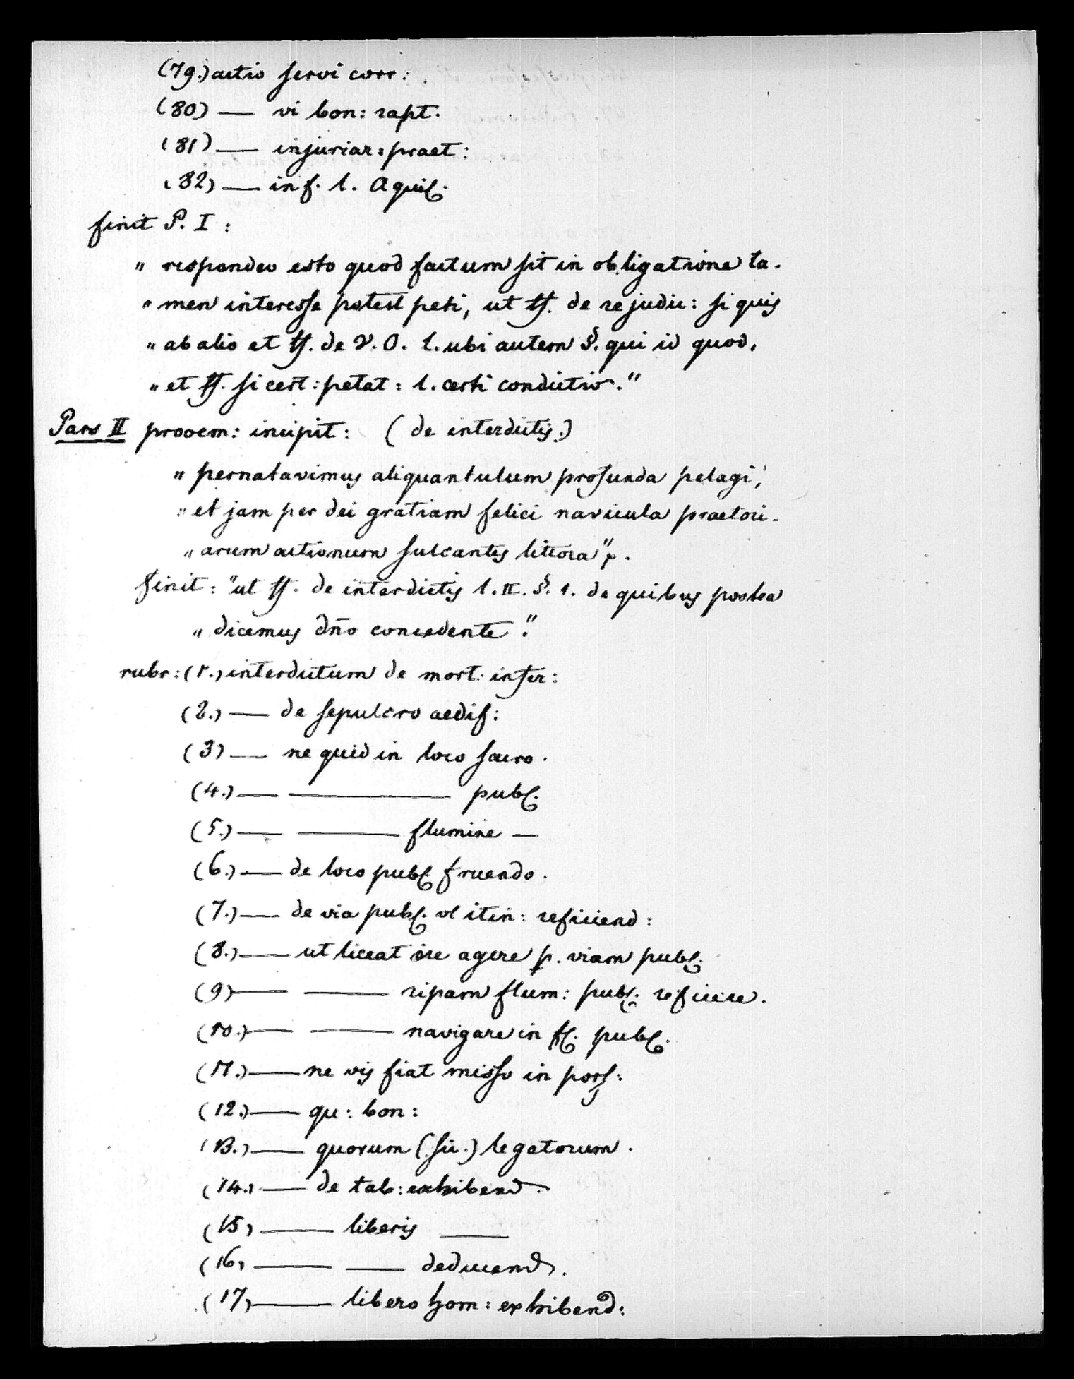 (79.) actio servi corr:
(80) — vi bon: rapt.
(81) — injuriar: praet:
(82) — in f. l. Aquil.
finit P. I :
„ respondeo esto quod factum sit in obligatione ta-
„ men interesse potest peti, ut ff. de re judic: si quis
„ ab alio et ff. de V. O. l. ubi autem §. qui id quod,
„ et ff. si cert: petat: l. certi condictio."
Pars II prooem: incipit: (de interdictis.)
„ pernatavimus aliquantulum profunda pelagi,
„ et jam per dei gratiam felici navicula praetori-
„ arum actionum sulcantes littora".
finit: "ut ff. de interdictis l. II. §. 1. de quibus postea
„ dicemus dño concedente."
rubr: (1.) interdictum de mort. infer:
(2.) — de sepulcro aedif:
(3) — ne quid in loco sacro.
(4.) — — publ.
(5.) — — flumine —
(6.) — de loco publ. fruendo.
(7.) — de via publ. vl itin: reficiend:
(8.) — ut liceat ire agere p. viam publ.
(9) — — ripam flum: publ. reficere.
(10.) — — navigare in fl. publ.
(11.) — ne vis fiat misso in poss:
(12.) — qu: bon:
(13.) — quorum (sic.) legatorum.
(14.) — de tab: exhibend.
(15) — liberis —
(16) — — deducend.
(17) — libero hom: exhibend: